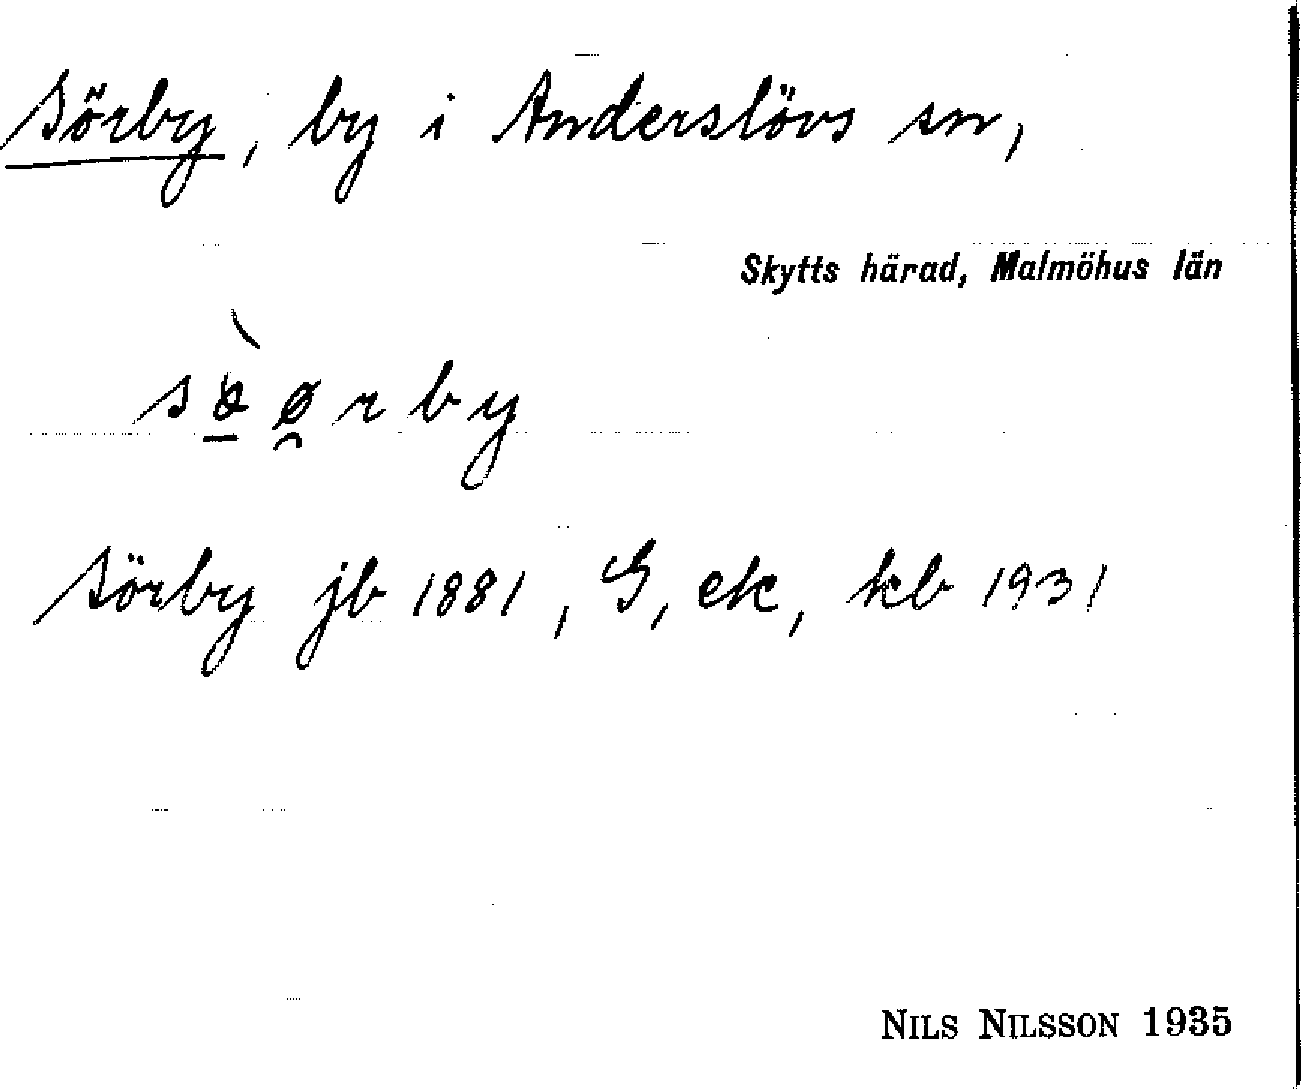 Sörby, by i Anderslövs sn,
Skytts härad, Malmöhus län
Sörby jb 1881, G, ek, kb 1931
NILS NILSSON 1935